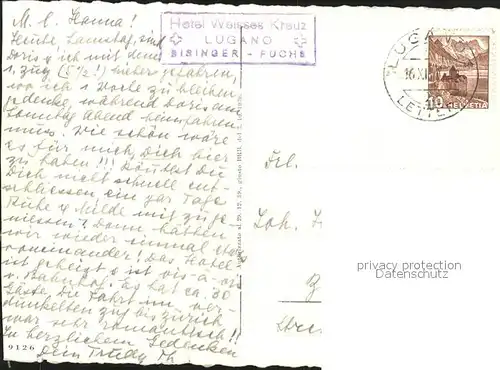 M. l. Hanna!
Heute, Samstag, sind
Doris & ich mit dem
1. zug (5½!) hieher gefahren,
wo ich 1 Woche zu bleiben
gedenke, während Doris am
Sonntag Abend heimfahren
muss. Wie schön wäre
es für mich, Dich hier
zu haben!!! Könntest Du
Dich nicht schnell ent-
schliessen ein paar Tage
Ruhe & Milde mit zu ge-
niessen? Dann hätten
wir wieder einmal etwas
voneinander! Das Hotel
ist geheizt & ist vis-à-vis
v. Bahnhof. Es hat ca. 30
Gäste. Die Fahrt im ver-
dunkelten zug bis Zürich
war sehr romantisch!!
In herzlichem Gedenken
Dein Trudy Th
9126
Hotel Weisses Kreuz
LUGANO
BISINGER - FUCHS
LUGANO
16.XI
LETTERE
10 HELVETIA
Frl.
Joh.
privacy protection
Datenschutz